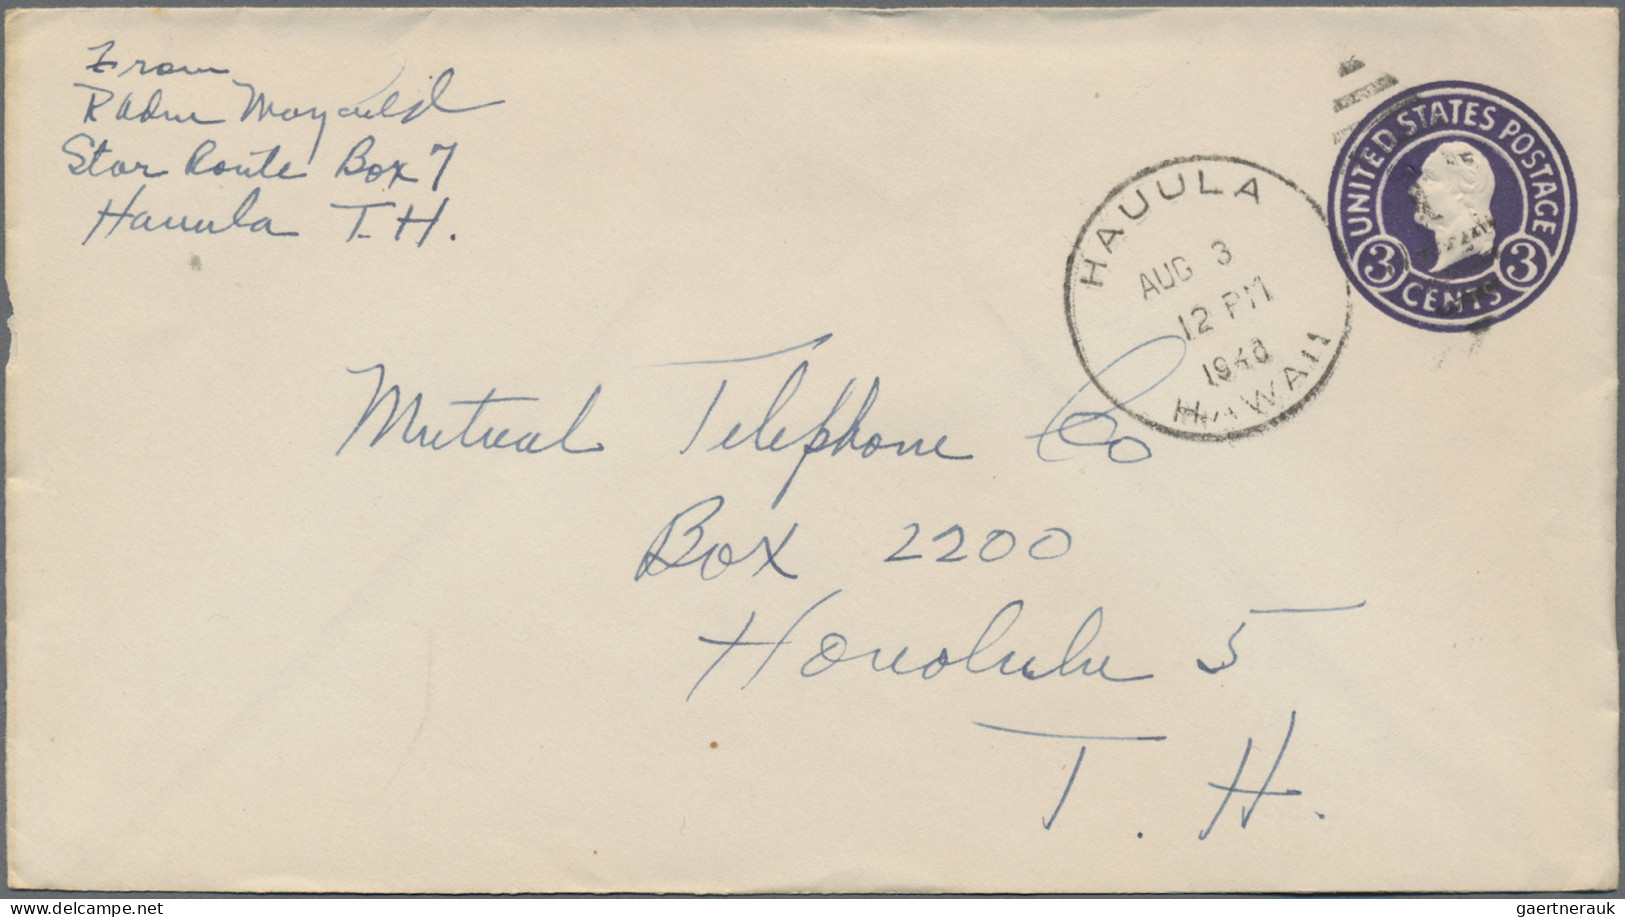 From
RAdm Mayfield
Star Route Box 7
Hauula T.H.
HAUULA
AUG 3
12 PM
1948
HAWAII
UNITED STATES POSTAGE
3 CENTS 3
Mutual Telephone Co
Box 2200
Honolulu 5
T. H.
delcampe.net
gaertnerauk